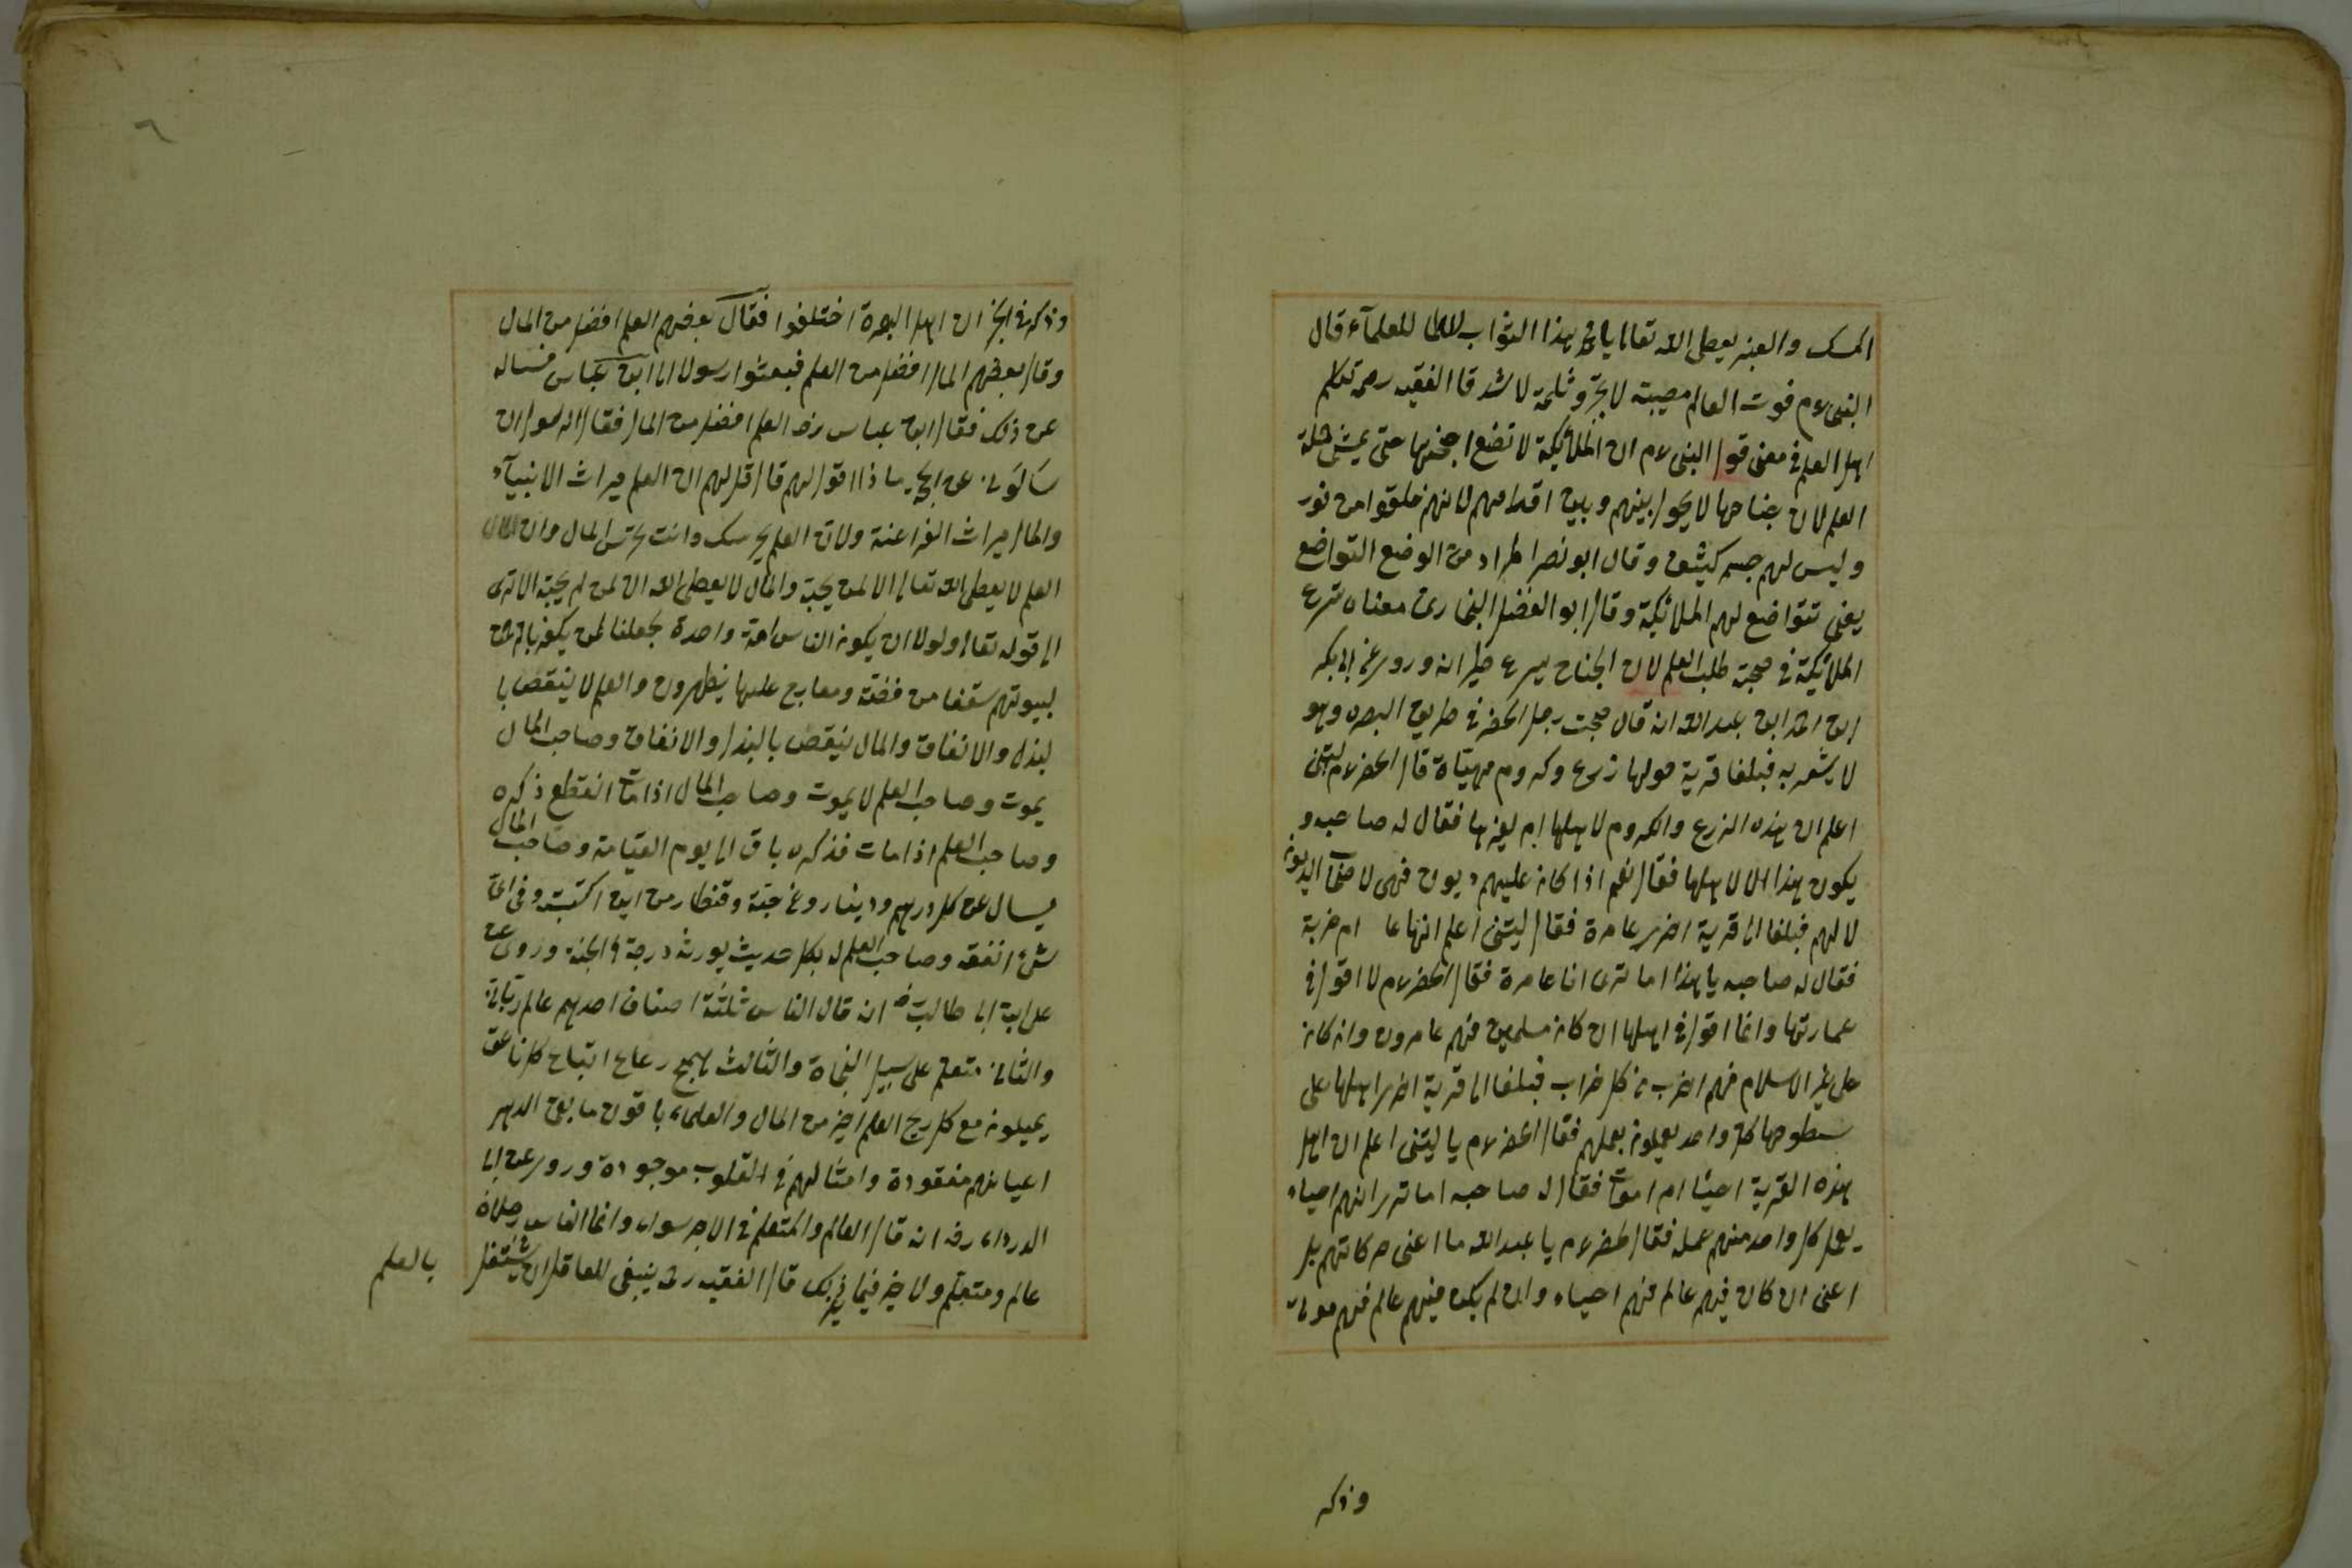 المسك والعنبر يعطى الله تعالى يا محمد هذا الثواب للعلماء قال
النبى ٤م فوت العالم مصيبة لا تجبر وثلمة لا تسد قا الفقيه رحمه تكلم
اهل العلم فى معنى قول النبى ٤م ان الملائكة لا تضع اجنحتها حتى يمشى طلبة
العلم لان جناحها لا يحول بينهم وبين اقدامهم لانهم خلقوا من نور
وليس لهم جسم كثيف وقال ابو نصر المراد من الوضع التواضع
يعنى تتواضع لهم الملائكة وقال ابو الفضل البخارى معناه تسرع
الملائكة فى محبة طلب العلم لان الجناح يسرع طيرانه وروى عن ابى بكر
ابن احمد ابن عبد الله انه قال صحبت رجل الخضر فى طريق البصره وهو
لا يشعر به فبلغا قرية حولها زرع وكروم مهيئاة قال الخضر ٤م ليتنى
اعلم ان هذه الزرع والكروم لاهلها ام لغيرها فقال له صاحبه و
يكون هذا الا لاهلها فقال نعم اذا كان عليهم ديون فهى لاصحاب الديون
لا لهم فبلغا الى قرية اخرى عامرة فقال ليتنى اعلم انها عا ام خربة
فقال له صاحبه يا هذا اما ترى انها عامرة فقال الخضر ٤م لا اقول فى
عمارتها وانما اقول فى اهلها ان كانه مسلمين فهم عامرون وان كانه
على غير الاسلام فهم اخرب من كل خراب فبلغا الى قرية اخرى اهلها على
سطوحها كل واحد يعملون بعملهم فقال الخضر ٤م يا ليتنى اعلم ان اهل
هذه القرية احياء ام اموات فقال له صاحبه اما ترى انهم احياء
يعمل كل واحد منهم عمله فقال خضر ٤م يا عبد الله ما اعنى حركاتهم بل
اعنى ان كان فيهم عالم فهم احياء وان لم يكن فيهم عالم فهم موتى
وذكر
٦
وذكر فى الخبر ان اهل البصرة اختلفوا فقال بعضهم العلم افضل من المال
وقال بعضهم المال افضل من العلم فبعثوا رسولا الى ابن عباس فساله
عن ذلك فقال ابن عباس رضه العلم افضل من المال فقال الرسول ان
سالونى عن الحجة ماذا اقول لهم قال قل لهم ان العلم ميراث الانبياء
والمال ميراث الفراعنة ولان العلم يحرسك وانت تحرس المال وان
العلم لا يعطى الله تعالى الا لمن يحبه والمال لا يعطى الله الا لمن لم يحبه الا ترى
الى قوله تعالى ولولا ان يكون الناس امة واحدة لجعلنا لمن يكفر بالرحمن
لبيوتهم سقفا من فضة ومعارج عليها يظهرون والعلم لا ينقص با
لبذل والانفاق والمال ينقص بالبذل والانفاق وصاحب المال
يموت وصاحب العلم لا يموت وصاحب المال اذا مات انقطع ذكره
وصاحب العلم اذا مات فذكره باق الى يوم القيامة وصاحب المال
يسال عن كل درهم ودينار وعن حبة وقنطار من اين اكتسبه وفى اى
شئ انفقه وصاحب العلم له بكل حديث يورثه درجة فى الجنة وروى عن
على ابن ابى طالب رضه انه قال الناس ثلثة اصناف احدهم عالم ربانى
والثانى متعلم على سبيل النجاة والثالث همج رعاع اتباع كل ناعق
يميلون مع كل ريح العلم خير من المال والعلماء باقون ما بقى الدهر
اعيانهم مفقودة وامثالهم فى القلوب موجودة وروى عن ابى
الدرداء رضه انه قال العالم والمتعلم فى الاجر سواء وانما الناس رجلان
عالم ومتعلم ولا خير فيما غير ذلك قال الفقيه رحمه ينبغى للعاقل ان يشتغل
بالعلم